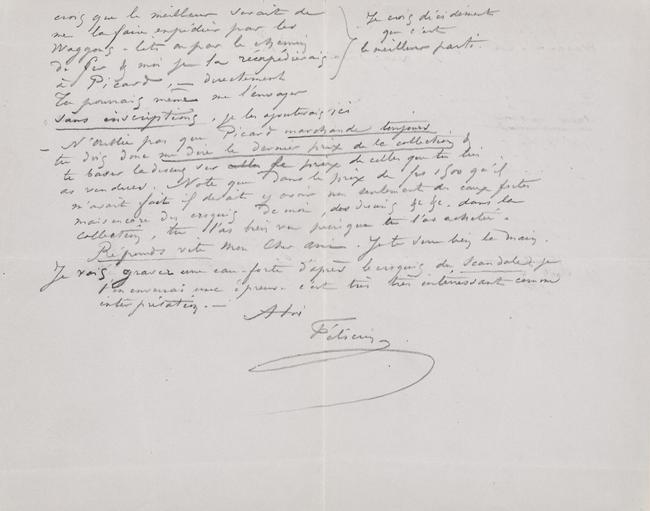 crois que le meilleur serait de
me la faire expédier par les
Waggons-lits ou par le chemin
de fer & moi je la réexpédierais
à Picard, — directement
Tu pourrais même me l'envoyer
sans inscriptions, je les ajouterais ici
Je crois décidément
que c'est
le meilleur parti.
— N'oublie pas que Picard marchande toujours
tu dois donc me dire le dernier prix de la collection &
te baser là dessus sur le prix de celles que tu
as vendues. Note que dans le prix de frs 1500 qu'il
m'avait fait il devait y avoir non seulement des eaux fortes
mais encore des croquis de moi, des dessins &c &c. dans la
collection, tu l'as bien vu puisque tu l'as achetée.
Réponds vite mon cher ami. Je te serre bien la main.
Je vais graver une eau-forte d'après le croquis du Scandale. je
t'en enverrai une épreuve c'est très très intéressant comme
interprétation. —
A toi